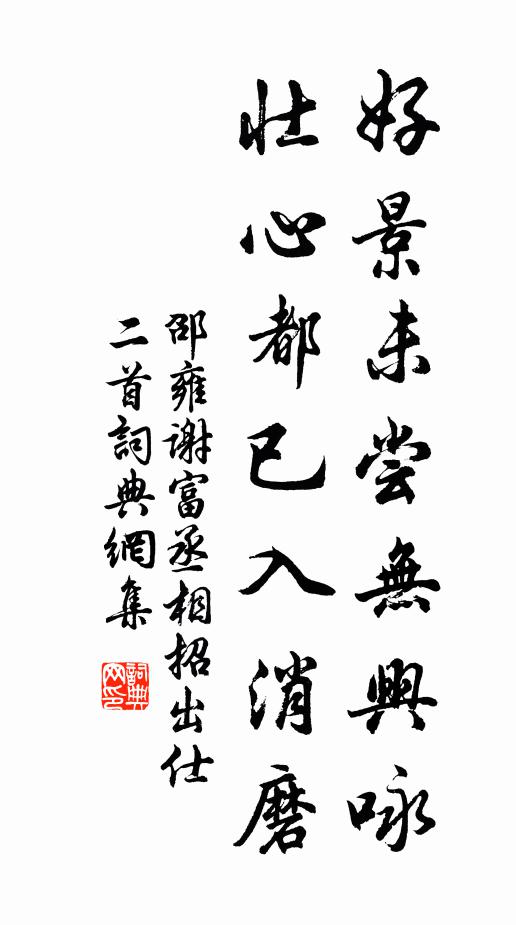 好景未尝無興咏
壮心都已入消磨
邵雍谢富丞相招出仕
二首詞典網集
詞典网印